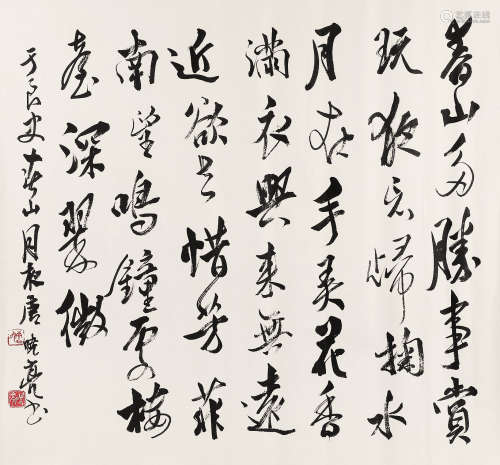 春山多勝事賞
玩夜忘歸掬水
月在手弄花香
滿衣興來無遠
近欲去惜芳菲
南望鳴鐘處樓
臺深翠微
于良史春山月夜唐曉亮书